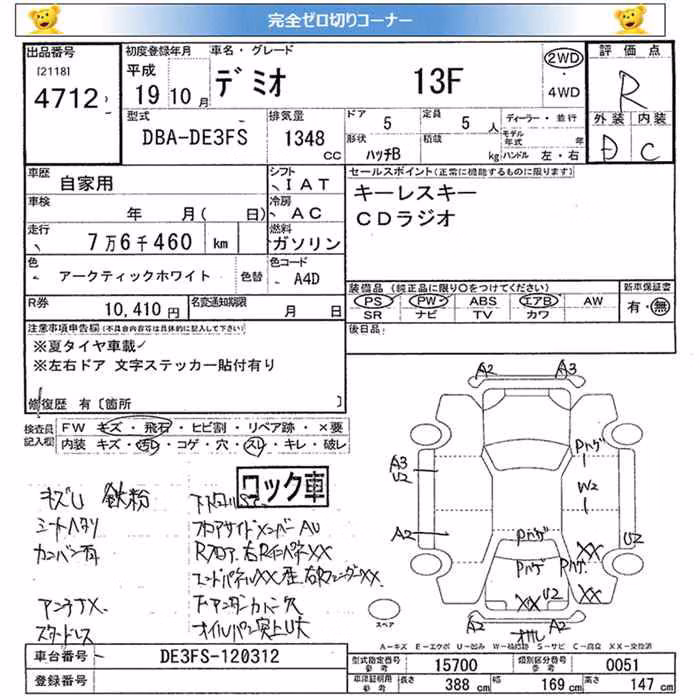 完全ゼロ切りコーナー
出品番号 初度登録年月 車名・グレード 評価点
[2118] 平成 デミオ 13F 2WD R
4712 19 10月 ・4WD
型式 排気量 ドア 定員 ディーラー・並行 外装 内装
DBA-DE3FS 1348 CC 5 5人 モデル年式 年 D C
形状 ハッチB 積載 kg ハンドル 左・右
車歴 自家用 シフト IAT セールスポイント(正常に機能するものに限ります)
車検 年 月( 日) 冷房 AC キーレスキー
走行 7万6千460 km 燃料 ガソリン CDラジオ
色 アークティックホワイト 色替 色コード A4D
装備品(純正品に限り○をつけてください) 新車保証書
R券 10,410円 名変通知期限 月 日 PS PW ABS エアB AW 有・無
SR ナビ TV カワ
注意事項申告欄(不具合内容等は具体的に記入して下さい) 後日品:
※夏タイヤ車載
※左右ドア 文字ステッカー貼付有り
修復歴 有〔箇所 〕
検査員記入欄 FW キズ・飛石・ヒビ割・リペア跡・×要
内装 キズ・汚レ・コゲ・穴・スレ・キレ・破レ
A2 A3
ロック車
A3
U2
Pハゲ
W2
A2
U2
Pハゲ
XX
Pハゲ
Pハゲ
XX
U2
XX
A2
A2
キズU 鉄粉
シートヘタリ フロアサイドメンバーAU
カンバン有
アンテナX 下アンダーカバー穴
スタッドレス オイルパン突上U大
スペア
A-キズ E-エクボ U-凹み W-補修跡 S-サビ C-腐食 XX-交換済
車台番号 DE3FS-120312 型式指定番号 参考 15700 類別区分番号 参考 0051
登録番号 車庫証明用 参考 長さ 388 cm 幅 169 cm 高さ 147 cm